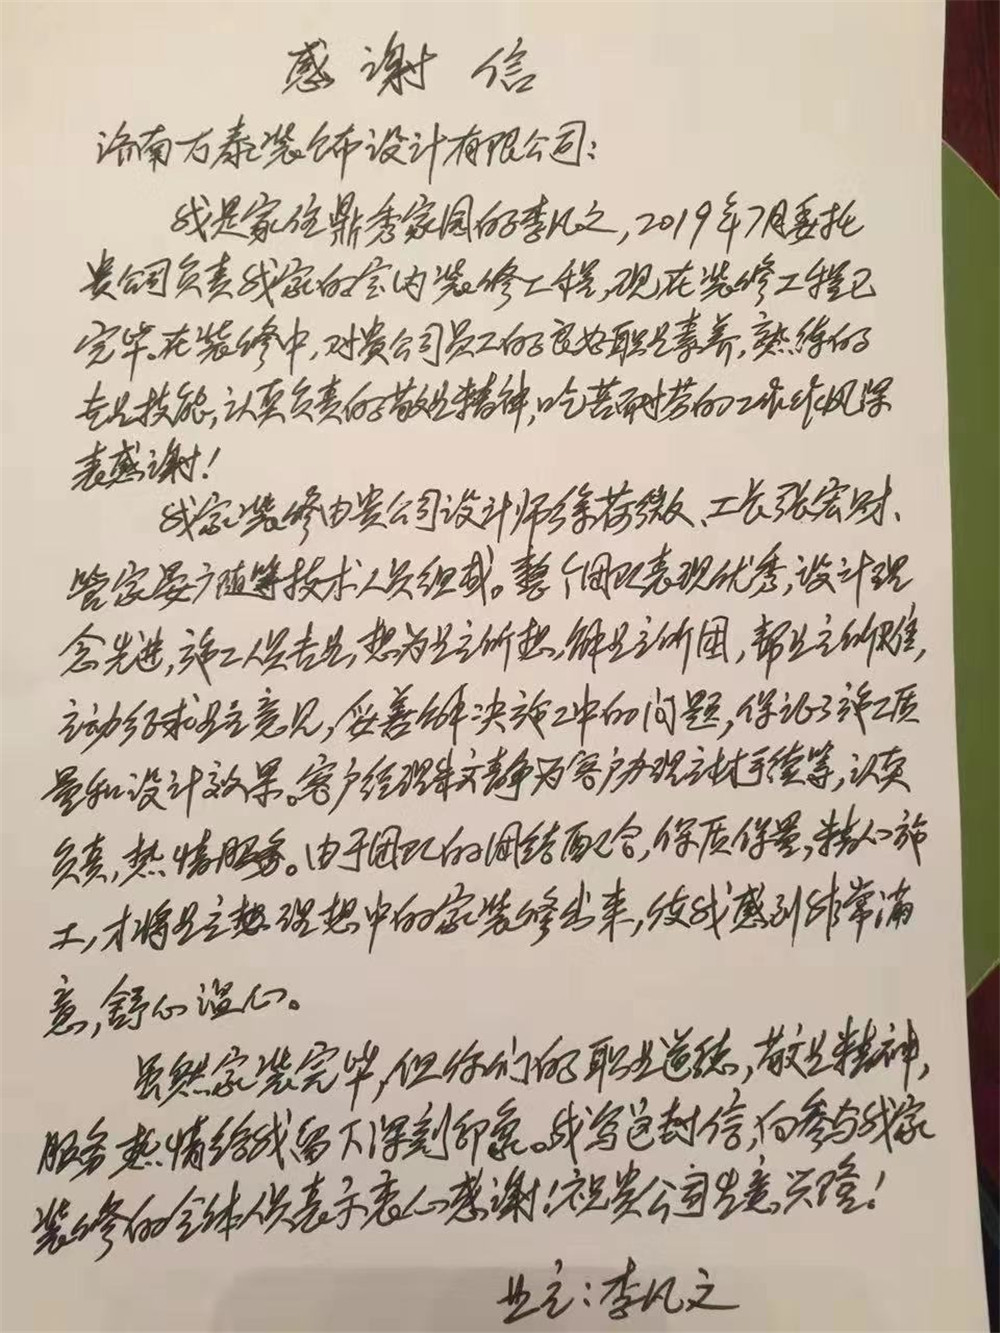 感谢信
济南万泰装饰设计有限公司：
我是家住鼎秀家园的李凡文，2019年7月委托
贵公司负责我家的室内装修工程，现在装修工程已
完毕。在装修中，对贵公司员工的良好职业素养，熟练的
专业技能，认真负责的敬业精神，吃苦耐劳的工作作风深
表感谢！
我家装修由贵公司设计师徐荷微、工长张宏财、
管家晏广随等技术人员组成。整个团队表现优秀，设计理
念先进，施工人员专业，想为业主所想，解业主所困，帮业主所难，
主动征求业主意见，妥善解决施工中的问题，保证了施工质
量和设计效果。客户经理朱文静为客户办理手续等，认真
负责，热情服务。由于团队的团结配合，保质保量，精心施
工，才将业主想理想中的家装修出来，使我感到非常满
意，舒心温心。
虽然家装完毕，但你们的职业道德，敬业精神，
服务热情给我留下深刻印象。我写这封信，向参与我家
装修的全体人员表示衷心感谢！祝贵公司生意兴隆！
业主：李凡文